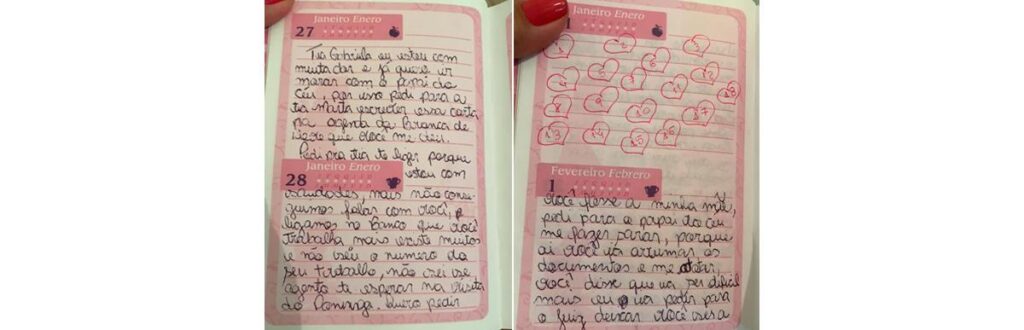 Janeiro Enero
27
Tia Gabriela eu estou com
muita dor e já quero ir
morar com o papai do
céu, por isso pedi para a
tia Marta escrever essa carta
na agenda da Branca de
Neve que você me deu.
Pedi pra tia te ligar porque
Janeiro Enero
28
estou com
saudades, mais não conse-
guimos falar com você,
ligamos no banco que você
trabalha mais existe muitos
e não sei o numero do
seu trabalho, não sei se
aguento te esperar na visita
do Domingo. Quero pedir
Janeiro Enero
1
2
3
4
5
6
7
8
9
10
11
12
13
14
15
16
17
18
Fevereiro Febrero
1
você fosse a minha mãe,
pedi para o papai do céu
me fazer sarar, porque
ai você ia arrumar os
documentos e me adotar,
você disse que ia ser dificil
mais eu ia pedir para
o juiz deixar você ser a